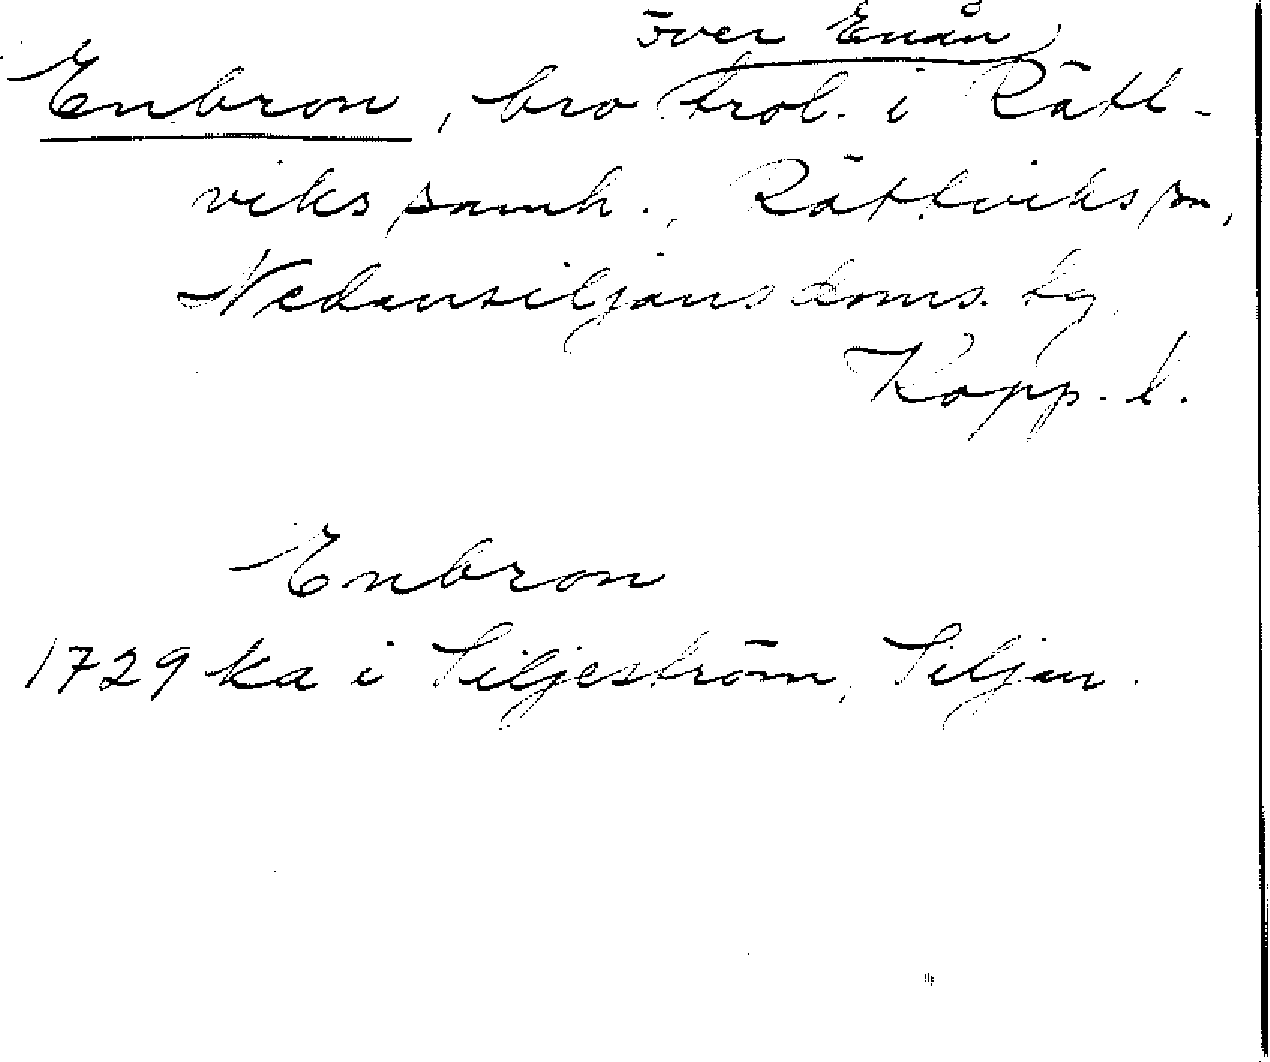 över Enån
Enbron, bro trol. i Rätt-
viks samh., Rättviks sn,
Nedansiljans doms. tg
Kopp. l.
Enbron
1729 ka i Siljeström, Siljan.